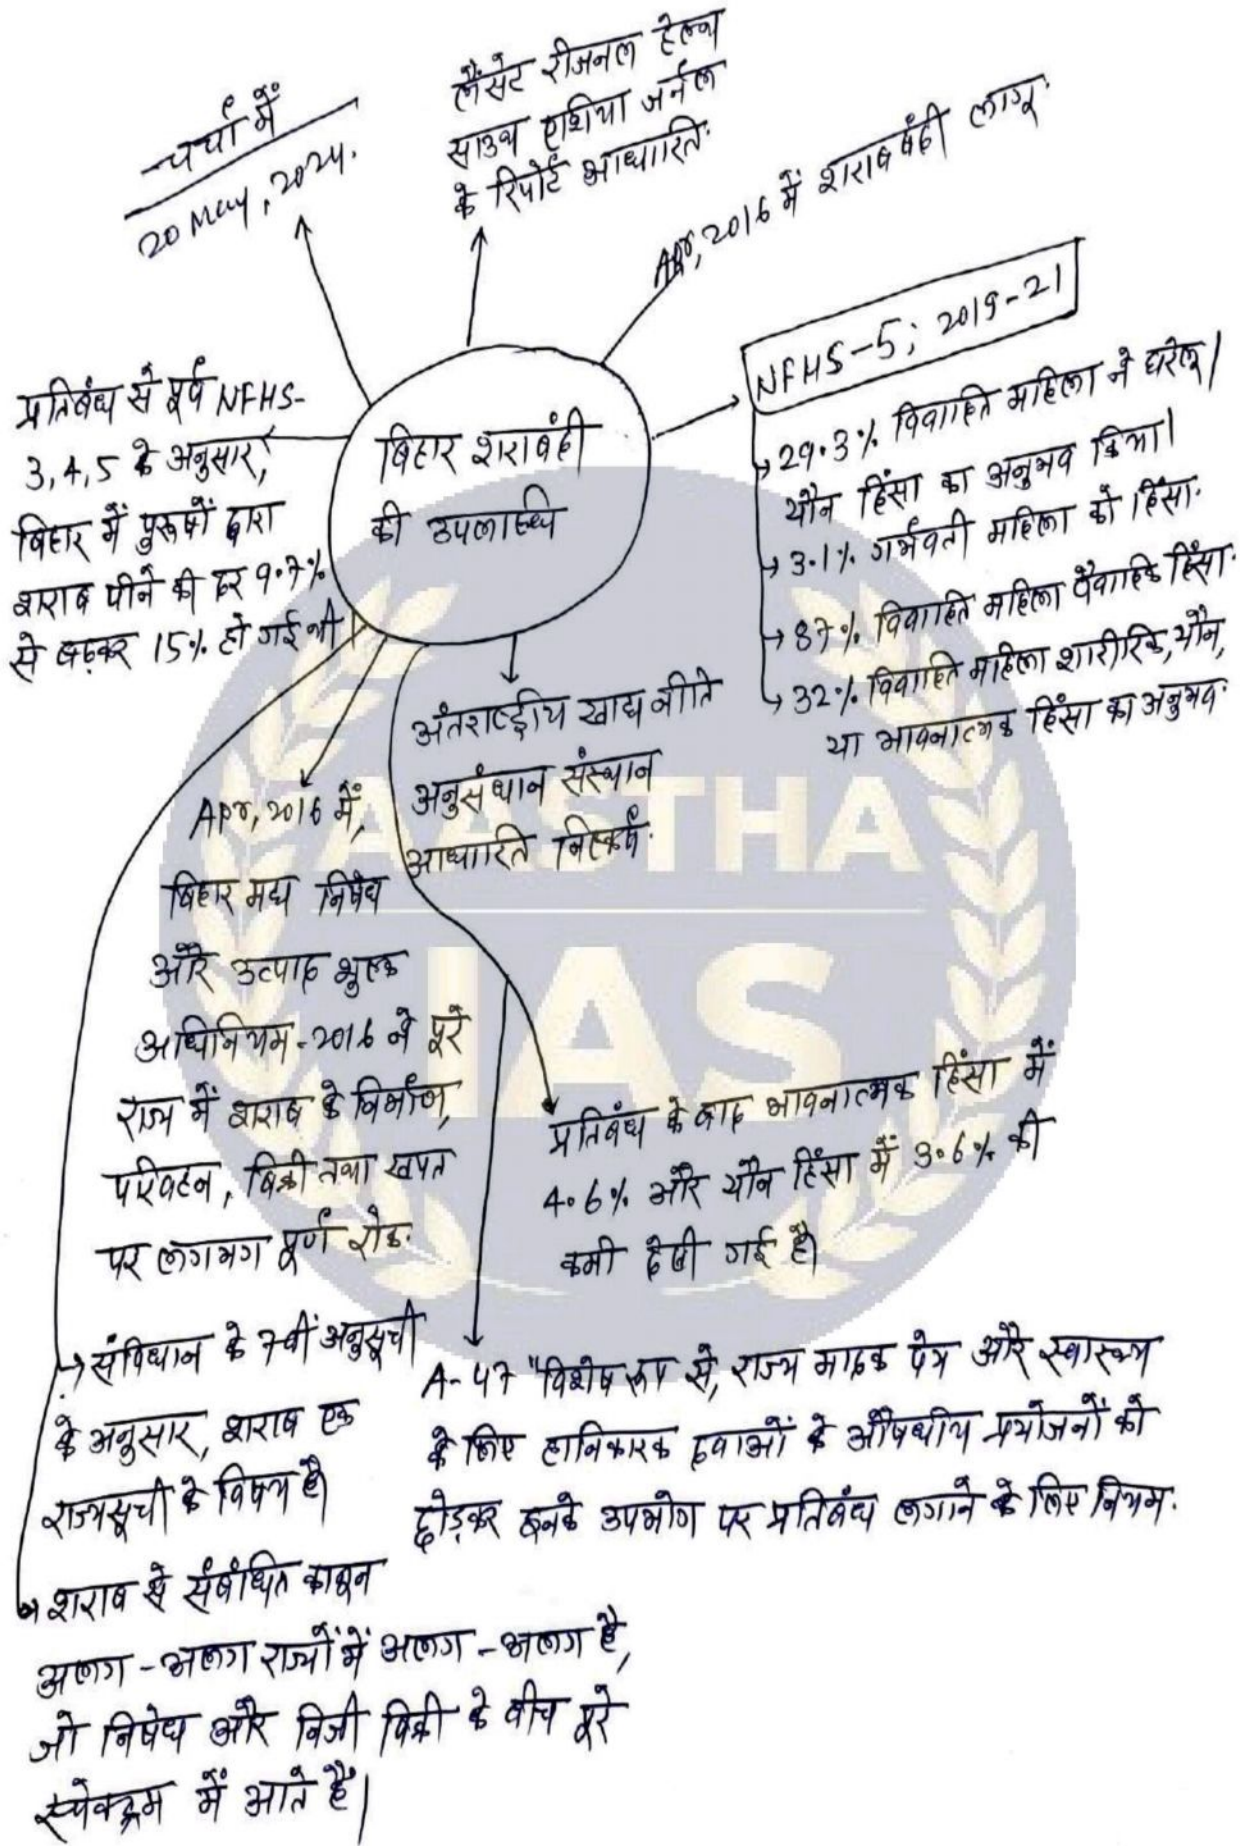 चर्चा में
20 May, 2024.
लैंसेट रीजनल हेल्थ
साउथ एशिया जर्नल
के रिपोर्ट आधारित.
Apr, 2016 में शराबबंदी लागू.
NFHS-5; 2019-21
→ 29.3% विवाहित महिला ने घरेलू/
यौन हिंसा का अनुभव किया।
→ 3.1% गर्भवती महिला को हिंसा.
→ 87% विवाहित महिला वैवाहिक हिंसा.
→ 32% विवाहित महिला शारीरिक, यौन,
या भावनात्मक हिंसा का अनुभव.
प्रतिबंध से पूर्व NFHS-
3,4,5 के अनुसार,
बिहार में पुरुषों द्वारा
शराब पीने की दर 9.7%
से बढ़कर 15% हो गई थी।
बिहार शराबंदी
की उपलब्धि
अंतराष्ट्रीय खाद्य नीति
अनुसंधान संस्थान
आधारित निष्कर्ष.
Apr, 2016 में,
बिहार मद्य निषेध
और उत्पाद शुल्क
अधिनियम-2016 ने पूरे
राज्य में शराब के निर्माण,
परिवहन, बिक्री तथा खपत
पर लगभग पूर्ण रोक.
प्रतिबंध के बाद भावनात्मक हिंसा में
4.6% और यौन हिंसा में 3.6% की
कमी देखी गई है।
→ संविधान के 7वीं अनुसूची
के अनुसार, शराब एक
राज्यसूची के विषय है।
A-47 "विशेष रूप से, राज्य मादक पेय और स्वास्थ्य
के लिए हानिकारक दवाओं के औषधीय प्रयोजनों को
छोड़कर इनके उपभोग पर प्रतिबंध लगाने के लिए नियम.
→ शराब से संबंधित कानून
अलग-अलग राज्यों में अलग-अलग है,
जो निषेध और निजी बिक्री के बीच पूरे
स्पेक्ट्रम में आते हैं।
AASTHA
IAS